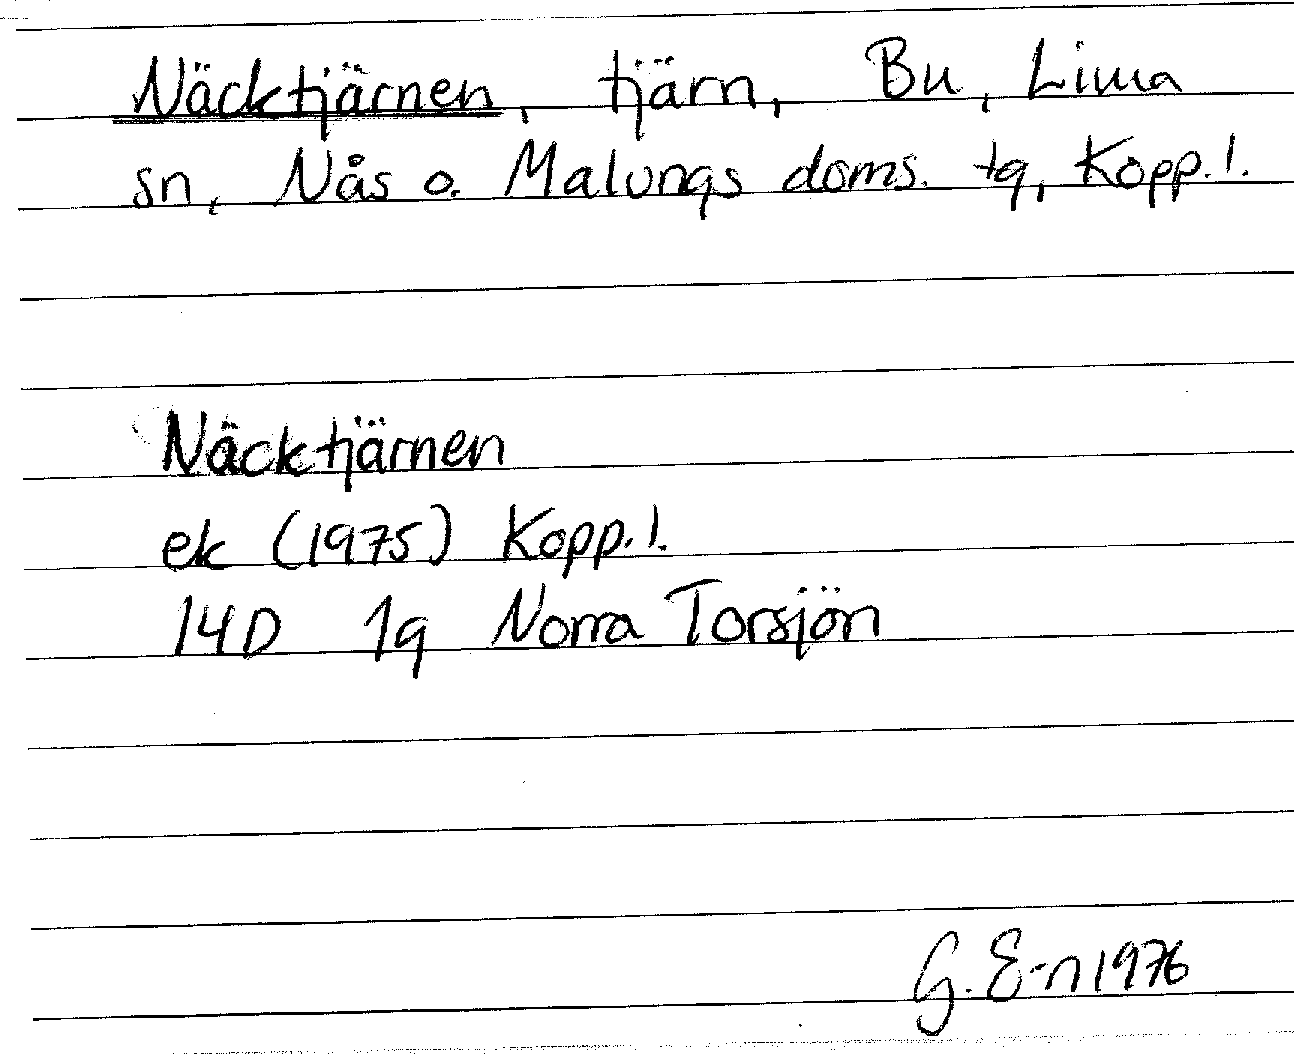 Näcktjärnen, tjärn, Bu, Lima
sn, Nås o. Malungs doms. tg, Kopp.l.
Näcktjärnen
ek (1975) Kopp.l.
14D 1g Norra Torsjön
G. E-n 1976